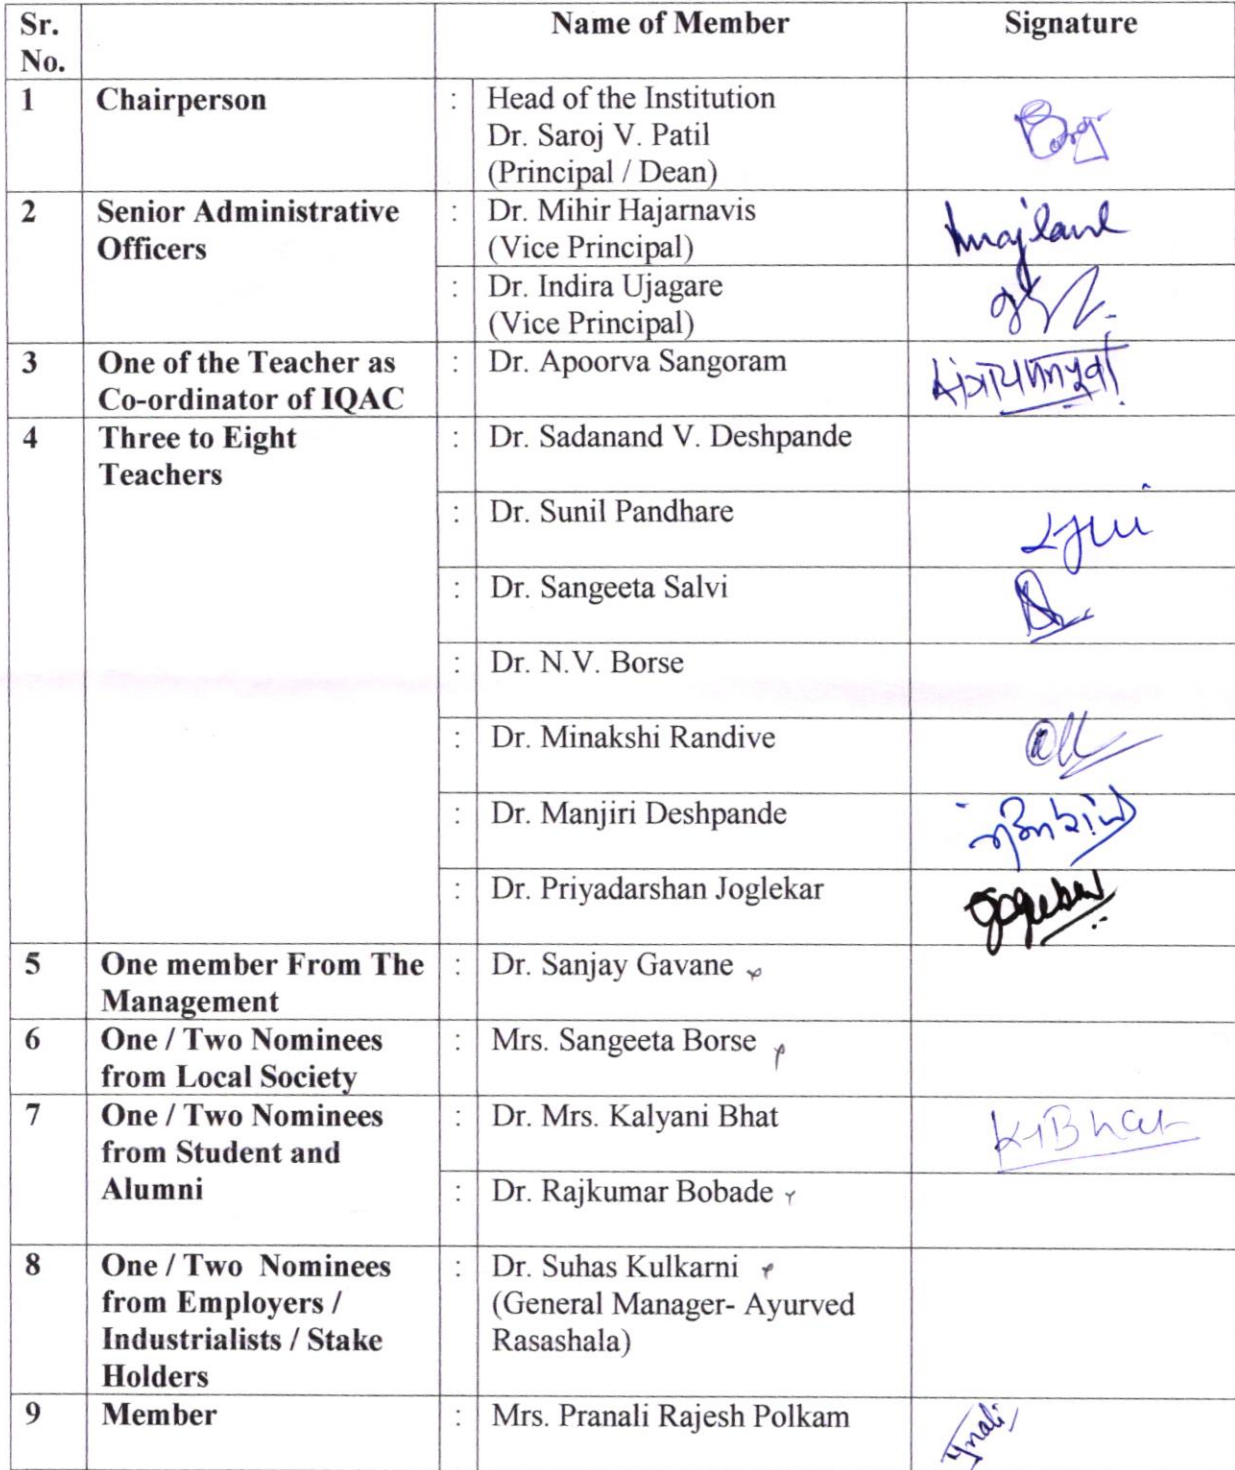 Sr. No. Name of Member Signature
1 Chairperson : Head of the Institution
Dr. Saroj V. Patil
(Principal / Dean)
2 Senior Administrative Officers : Dr. Mihir Hajarnavis
(Vice Principal)
: Dr. Indira Ujagare
(Vice Principal)
3 One of the Teacher as Co-ordinator of IQAC : Dr. Apoorva Sangoram
4 Three to Eight Teachers : Dr. Sadanand V. Deshpande
: Dr. Sunil Pandhare
: Dr. Sangeeta Salvi
: Dr. N.V. Borse
: Dr. Minakshi Randive
: Dr. Manjiri Deshpande
: Dr. Priyadarshan Joglekar
5 One member From The Management : Dr. Sanjay Gavane
6 One / Two Nominees from Local Society : Mrs. Sangeeta Borse
7 One / Two Nominees from Student and Alumni : Dr. Mrs. Kalyani Bhat KBhat
: Dr. Rajkumar Bobade
8 One / Two Nominees from Employers / Industrialists / Stake Holders : Dr. Suhas Kulkarni
(General Manager- Ayurved
Rasashala)
9 Member : Mrs. Pranali Rajesh Polkam